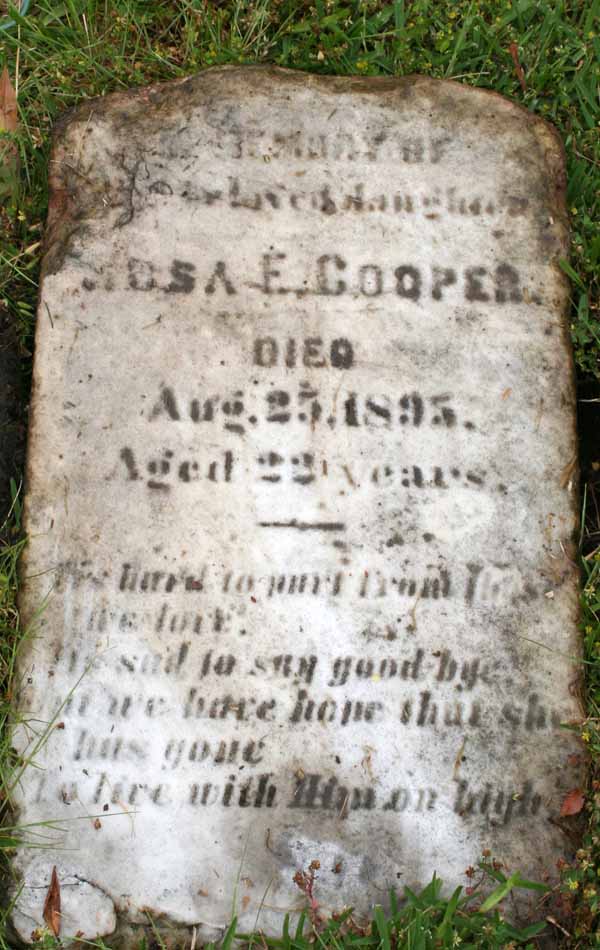 MEMORY OF
beloved daughter
E. COOPER.
DIED
Aug. 25, 1895.
Aged 22 years.
hard to part from
we love.
sad to say good-bye
we have hope that she
has gone
To live with Him on high